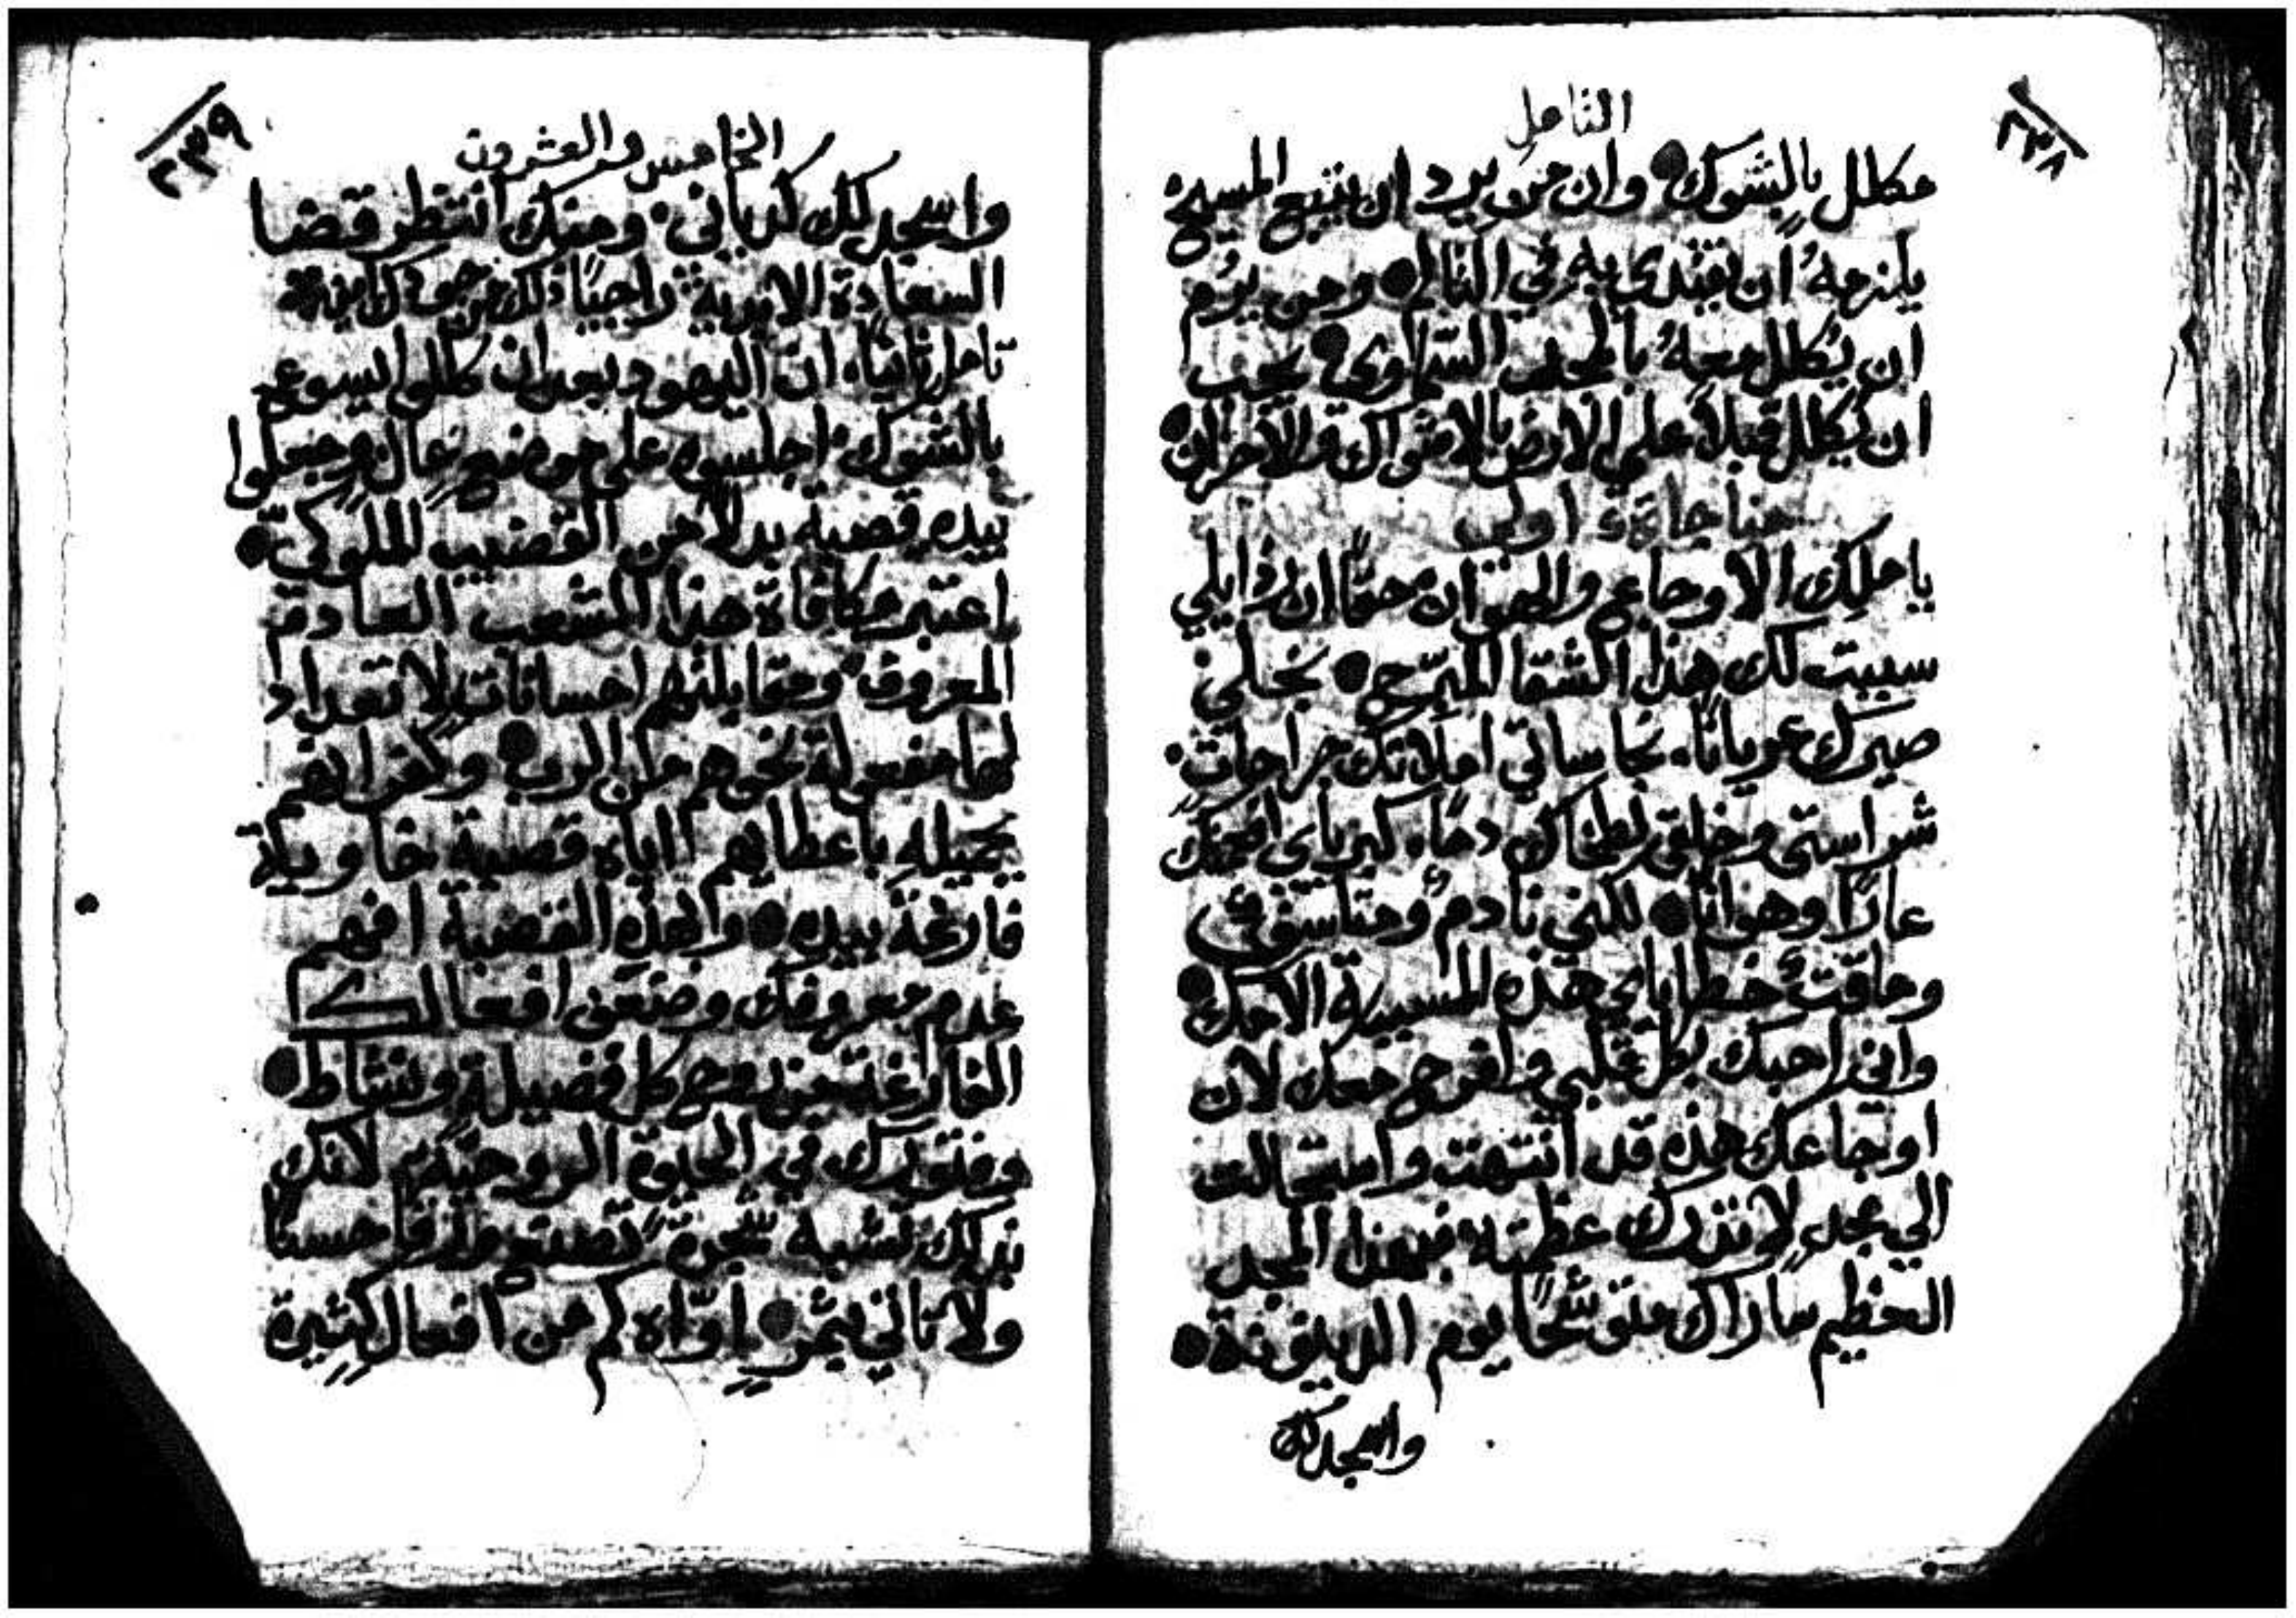 ٢٣٨
التامل
مكلل بالشوك وان من يرد ان يتبع المسيح
يلزمهُ ان يقتدي به في التالم ومن يرُم
ان يُكلل معهُ بالمجد السماوي يجب
ان يُكلل قبلاً علي الارض بالاشواك والاحزان
مناجاة اولي
يا ملك الاوجاع والهوان حقاً ان رذايلي
سببت لك هذا الشقا المبرّح بخلي
صيرك عرياناً نجاساتي املاتك جراحات
شراستي وخلقي لطخاك دماً كبرياي
عارًا وهوانًا لكني نادمٌ ومتاسف
وماقتٌ خطاياي هذه المسببة الامك
واني احبك بكل قلبي وافرح معك لان
اوجاعك هذه قد انتهت واستحالت
الي مجدٍ لا تدرك عظمته فبهذا المجد
العظيم ساراك متوشحًا يوم الدينونة
واسجد لك
٢٣٩
الخامس والعشرون
واسجد لك كديّاني ومنك انتظر قضا
السعادة الابدية راجيًا ذلك من جودك
تامل ثانيًا ان اليهود بعد ان كللوا ليسوع
بالشوك اجلسوه علي موضعٍ عالٍ وجعلوا
بيده قصبة بدلاً من القضيب الملوكيّ
اعتبر مكافاة هذا الشعب العادم
المعروف ومقابلتهم احساناتٍ لا تعداد
لها مفعولة نحوهم من الرب وكفرانهم
بجميله باعطايهم اياه قصبة خاوية
فارغة بيده وبهذه القصبة افهم
عدم معروفك وضعف افعالك
الفارغة من روح كل فضيلةٍ ونشاط
وفتورك في الحيوة الروحيّة لانك
بذلك تشبه شجرةً تصنع ورقًا حسنًا
ولا تاتي بثمرٍ اوّاه كم من افعال كثيرة